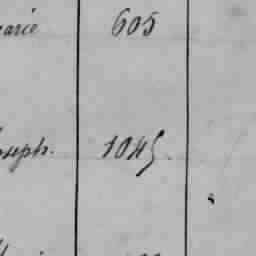 marie 605
Joseph. 1045